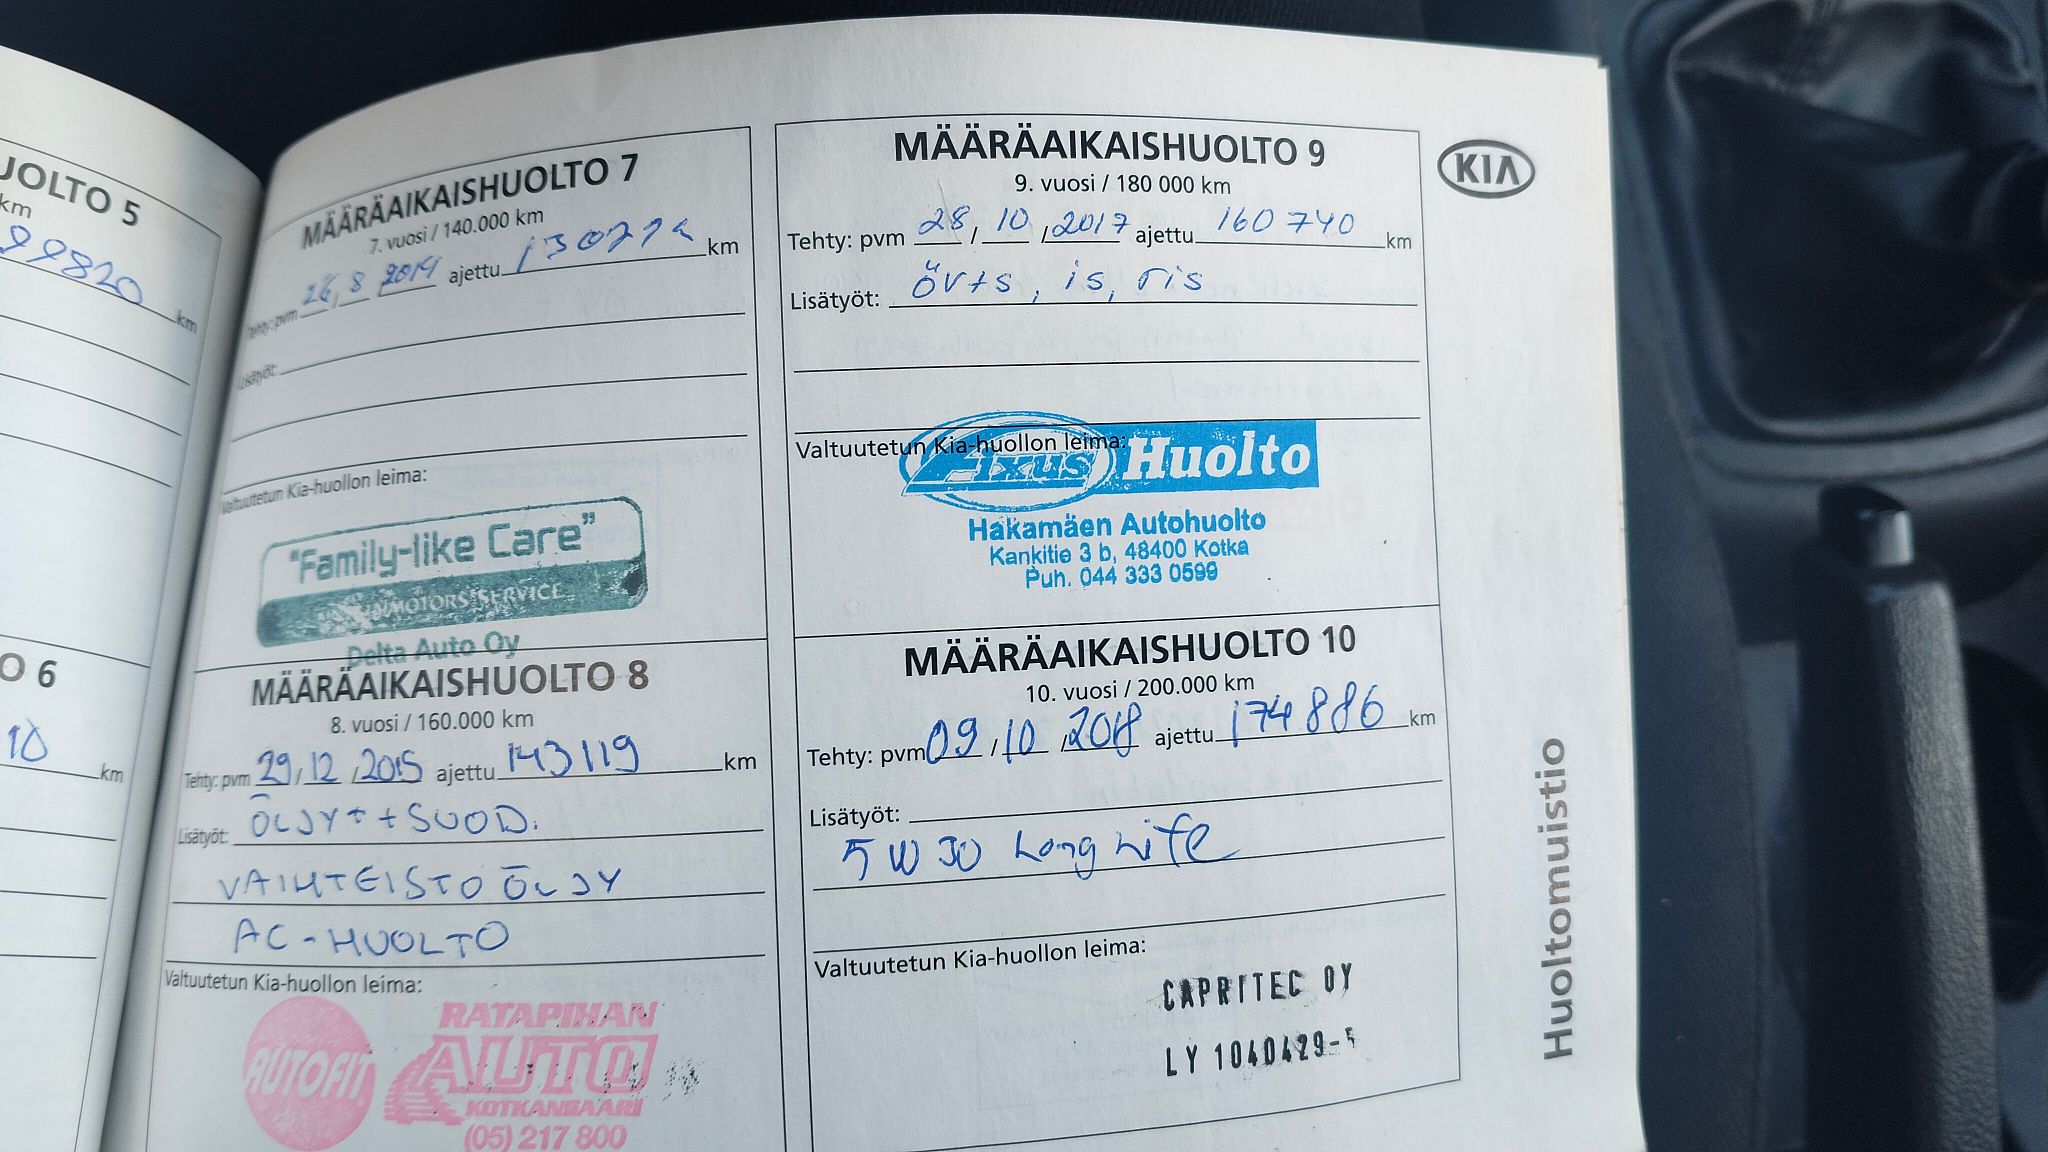 UOLTO 5
km
99820 km
O 6
10 km
MÄÄRÄAIKAISHUOLTO 7
7. vuosi / 140.000 km
Tehty: pvm 26, 8 2014 ajettu km
Lisätyöt:
Valtuutetun Kia-huollon leima:
"Family-like Care"
MOTORS SERVICE
Delta Auto Oy
MÄÄRÄAIKAISHUOLTO 8
8. vuosi / 160.000 km
Tehty: pvm 29 / 12 / 2015 ajettu 143119 km
Lisätyöt: ÖLJYT + SUOD.
VAIHTEISTO ÖLJY
AC-HUOLTO
Valtuutetun Kia-huollon leima:
AUTOFIT
RATAPIHAN
AUTO
KOTKANSAARI
(05) 217 800
MÄÄRÄAIKAISHUOLTO 9
9. vuosi / 180 000 km
Tehty: pvm 28 / 10 / 2017 ajettu 160740 km
Lisätyöt: övts, is, ris
Valtuutetun Kia-huollon leima:
Axus Huolto
Hakamäen Autohuolto
Kankitie 3 b, 48400 Kotka
Puh. 044 333 0599
MÄÄRÄAIKAISHUOLTO 10
10. vuosi / 200.000 km
Tehty: pvm 09 / 10 / 2018 ajettu 174886 km
Lisätyöt:
5W30 Long Life
Valtuutetun Kia-huollon leima:
CAPRITEC OY
LY 1040429-5
KIA
Huoltomuistio